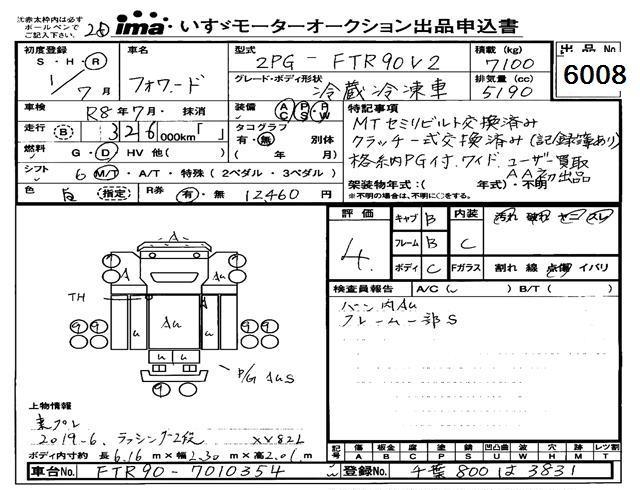 ima いすゞモーターオークション出品申込書
※赤太枠内は必ず
ボールペンで
ご記入下さい。
初度登録
S・H・R
1/7月
車名
フォワード
型式
2PG-FTR90V2
積載(kg)
7100
グレード・ボディ形状
冷蔵冷凍車
排気量(cc)
5190
出品No
6008
車検
R8年7月・抹消
装備 AC PS PW
走行(B) 326,000km「 」
タコグラフ 別体
有・無 ( 年 月)
燃料 G・D HV 他( )
シフト 6 M/T・A/T・特殊(2ペダル・3ペダル)
色
(指定)
R券
有・無
12460円
特記事項
MTセミリビルト交換済み
クラッチ一式交換済み(記録簿あり)
格納PG付.ワイド.ユーザー買取
AA初出品
架装物年式:( 年式)・不明
※不明の場合は、不明に○をする。
評価
4
キャブ B
フレーム B
ボディ C
内装
C
Fガラス
割れ 線 点傷 イバリ
検査員報告 A/C( ) B/T( )
バーン内Au
フレーム一部S
A
A
TH
Au
u
u
u
9
9
9
9
P/G AuS
上物情報
東プレ
2019-6. ラッシング2段 XV82L
ボディ内寸約 長6.16m×幅2.30m×高2.01m
記号
傷 板金 腐 塗 錆 凹凸曲 波 穴 跡 レツ割
A B C P S U W H M T
車台No.
FTR90-7010354
登録No.
千葉800は3831